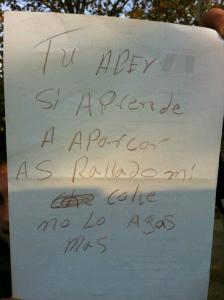 TU
Si APrende
A APArcar
AS Rallado mi
coHe
no Lo AgAs
mAs